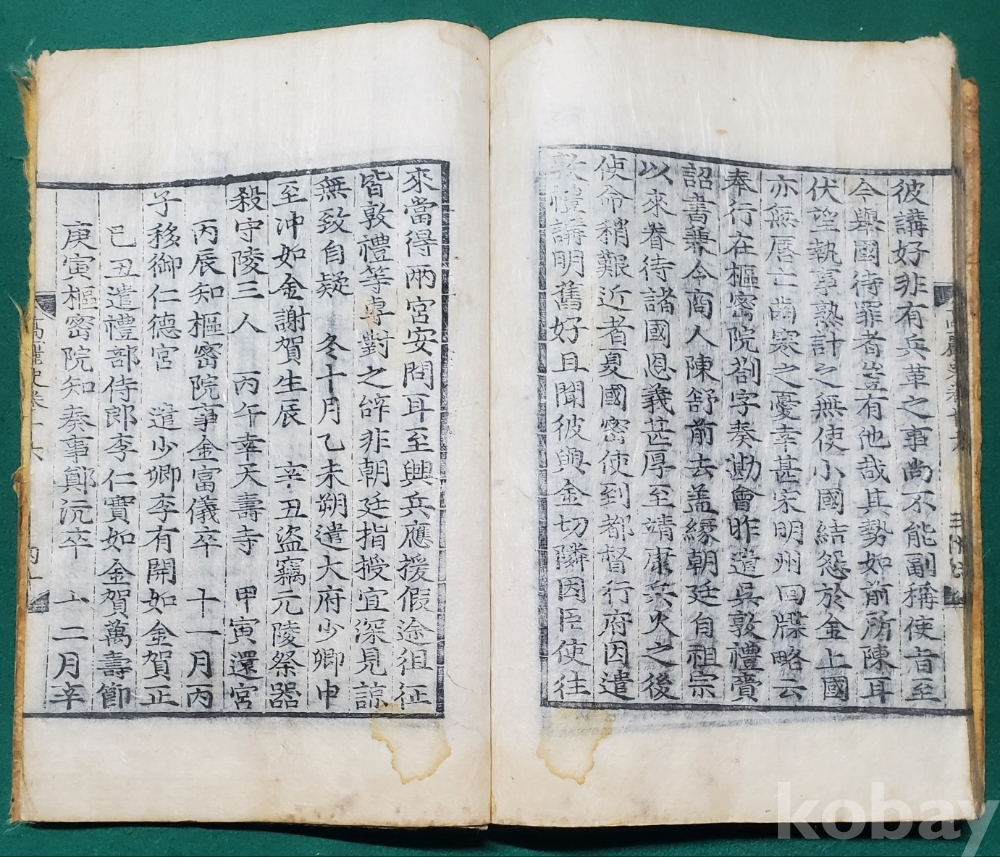 彼講好非有兵革之事尚不能副稱使旨至
今擧國待罪者豈有他哉其勢如前所陳耳
伏望執事熟計之無使小國結怨於金上國
亦無唇亡齒寒之憂幸甚宋明州回牒略云
奉行在樞密院箚字奏勘會昨遣吳敦禮賫
詔書兼令商人陳舒前去盖緣朝廷自祖宗
以來眷待諸國恩義甚厚至靖康兵火之後
使命稍艱近者夏國密使到都督行府因遣
敦禮講明舊好且聞彼與金切隣因臣使往
來當得兩宮安問耳至興兵應援假途徂征
皆敦禮等專對之辭非朝廷指授宜深見諒
無致自疑 冬十月乙未朔遣大府少卿申
至冲如金謝賀生辰 辛丑盜竊元陵祭器
殺守陵三人 丙午幸天壽寺 甲寅還宮
丙辰知樞密院事金富儀卒 十一月丙
子移御仁德宮 遣少卿李有開如金賀正
己丑遣禮部侍郎李仁實如金賀萬壽節
庚寅樞密院知奏事鄭沅卒 十二月辛
高麗史卷十六
kobay